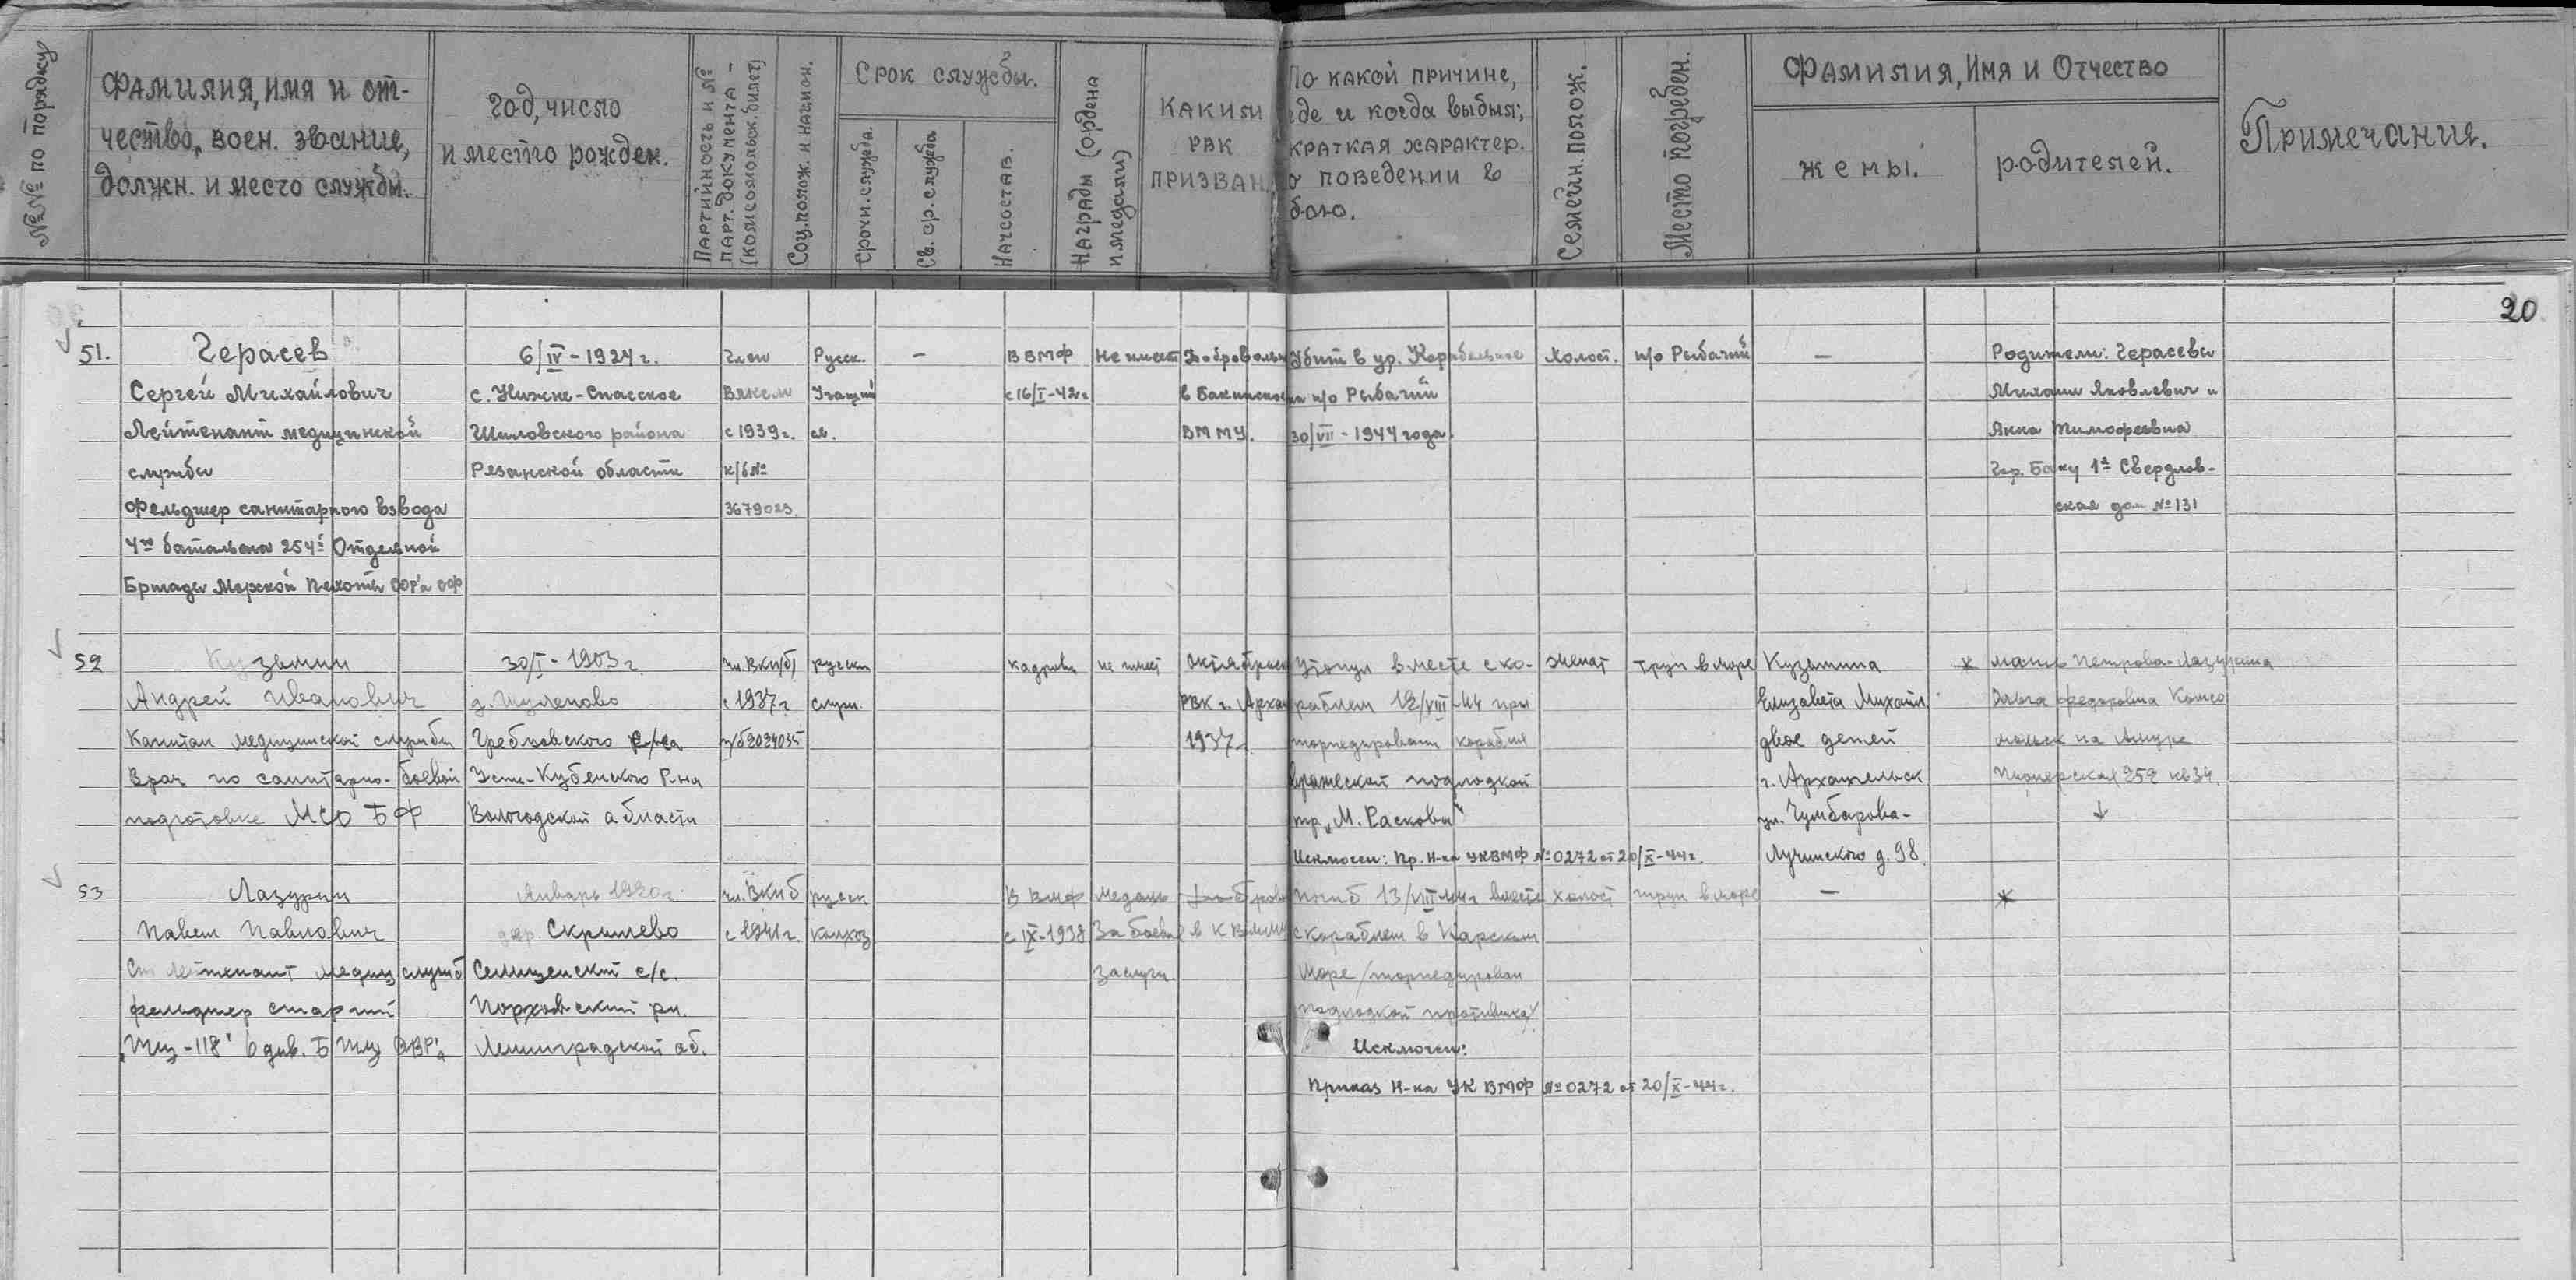 №№ по порядку
Фамилия, имя и от-
чество, воен. звание,
должн. и место службы.
Год, число
и место рожден.
Партийность и №
парт. документа –
(комсомольск. билет)
Соц. полож. и национ.
Срок службы.
Срочн. служба.
Св. ср. служба
Начсостав.
Награды (ордена
и медали)
Каким
РВК
призван.
По какой причине,
где и когда выбыл;
краткая характер.
о поведении в
бою.
Семейн. полож.
Место погребен.
Фамилия, Имя и Отчество
жены.
родителей.
Примечание.
20
51.
Герасев
Сергей Михайлович
Лейтенант медицинской
службы
Фельдшер санитарного взвода
4го батальона 254й Отдельной
Бригады Морской Пехоты СОР'а СФ
6/IV - 1924 г.
с. Нижне-Спасское
Шиловского района
Рязанской области
Член
ВЛКСМ
с 1939 г.
к/б №
3679023.
Русск.
Учащий
ся.
-
В ВМФ
с 16/I-42 г
Не имеет
Добровольно
в Бакинское
ВММУ.
Убит в ур. Корабельное
на п/о Рыбачий
30/VII - 1944 года.
Холост.
п/о Рыбачий
-
Родители: Герасевы
Михаил Яковлевич и
Анна Тимофеевна
Гор. Баку 1я Свердлов-
ская дом № 131
52
Кузьмин
Андрей Иванович
Капитан медицинской службы
Врач по санитарно-боевой
подготовке МСО БФ
30/I - 1903 г
д. Шуленово
Гребцовского с/са
Усть-Кубенского Р-на
Вологодской области
чл. ВКП/б/
с 1937 г
п/б 2024035
русский
служ.
кадровый
не имеет
Октябрьск
РВК г. Архан
1937 г
Утонул вместе с ко-
раблем 12/VIII-44 при
торпедировании корабля
вражеской подлодкой
тр. „М. Раскова"
Исключен: Пр. Н-ка УКВМФ № 0272 от 20/X-44 г.
женат
труп в море
Кузьмина
Елизавета Михайл.
двое детей
г. Архангельск
ул. Чумбарова-
Лучинского д. 98.
* мать Петрова-Лазурина
Ольга Федоровна Комсо
мольск на Амуре
Пионерская 252 кв 34
↓
53
Лазурин
Павел Павлович
Ст. лейтенант медиц служб
фельдшер старший
„ТЩ-118" 6 див. БТЩ ОВР'а
Январь 1920 г.
дер. Скрипево
Селищенский с/с.
Порховский рн.
Ленинградской об.
чл. ВКПб
с 1941 г.
русск
колхоз
В ВМФ
с IX-1938
Медаль
За боевые
заслуги
Добровол
в КВММУ
Погиб 13/VIII 44 г. вместе
с кораблем в Карском
Море /торпедирован
подлодкой противника/
Исключен:
Приказ Н-ка УК ВМФ № 0272 от 20/X-44 г.
холост
труп в море
-
*